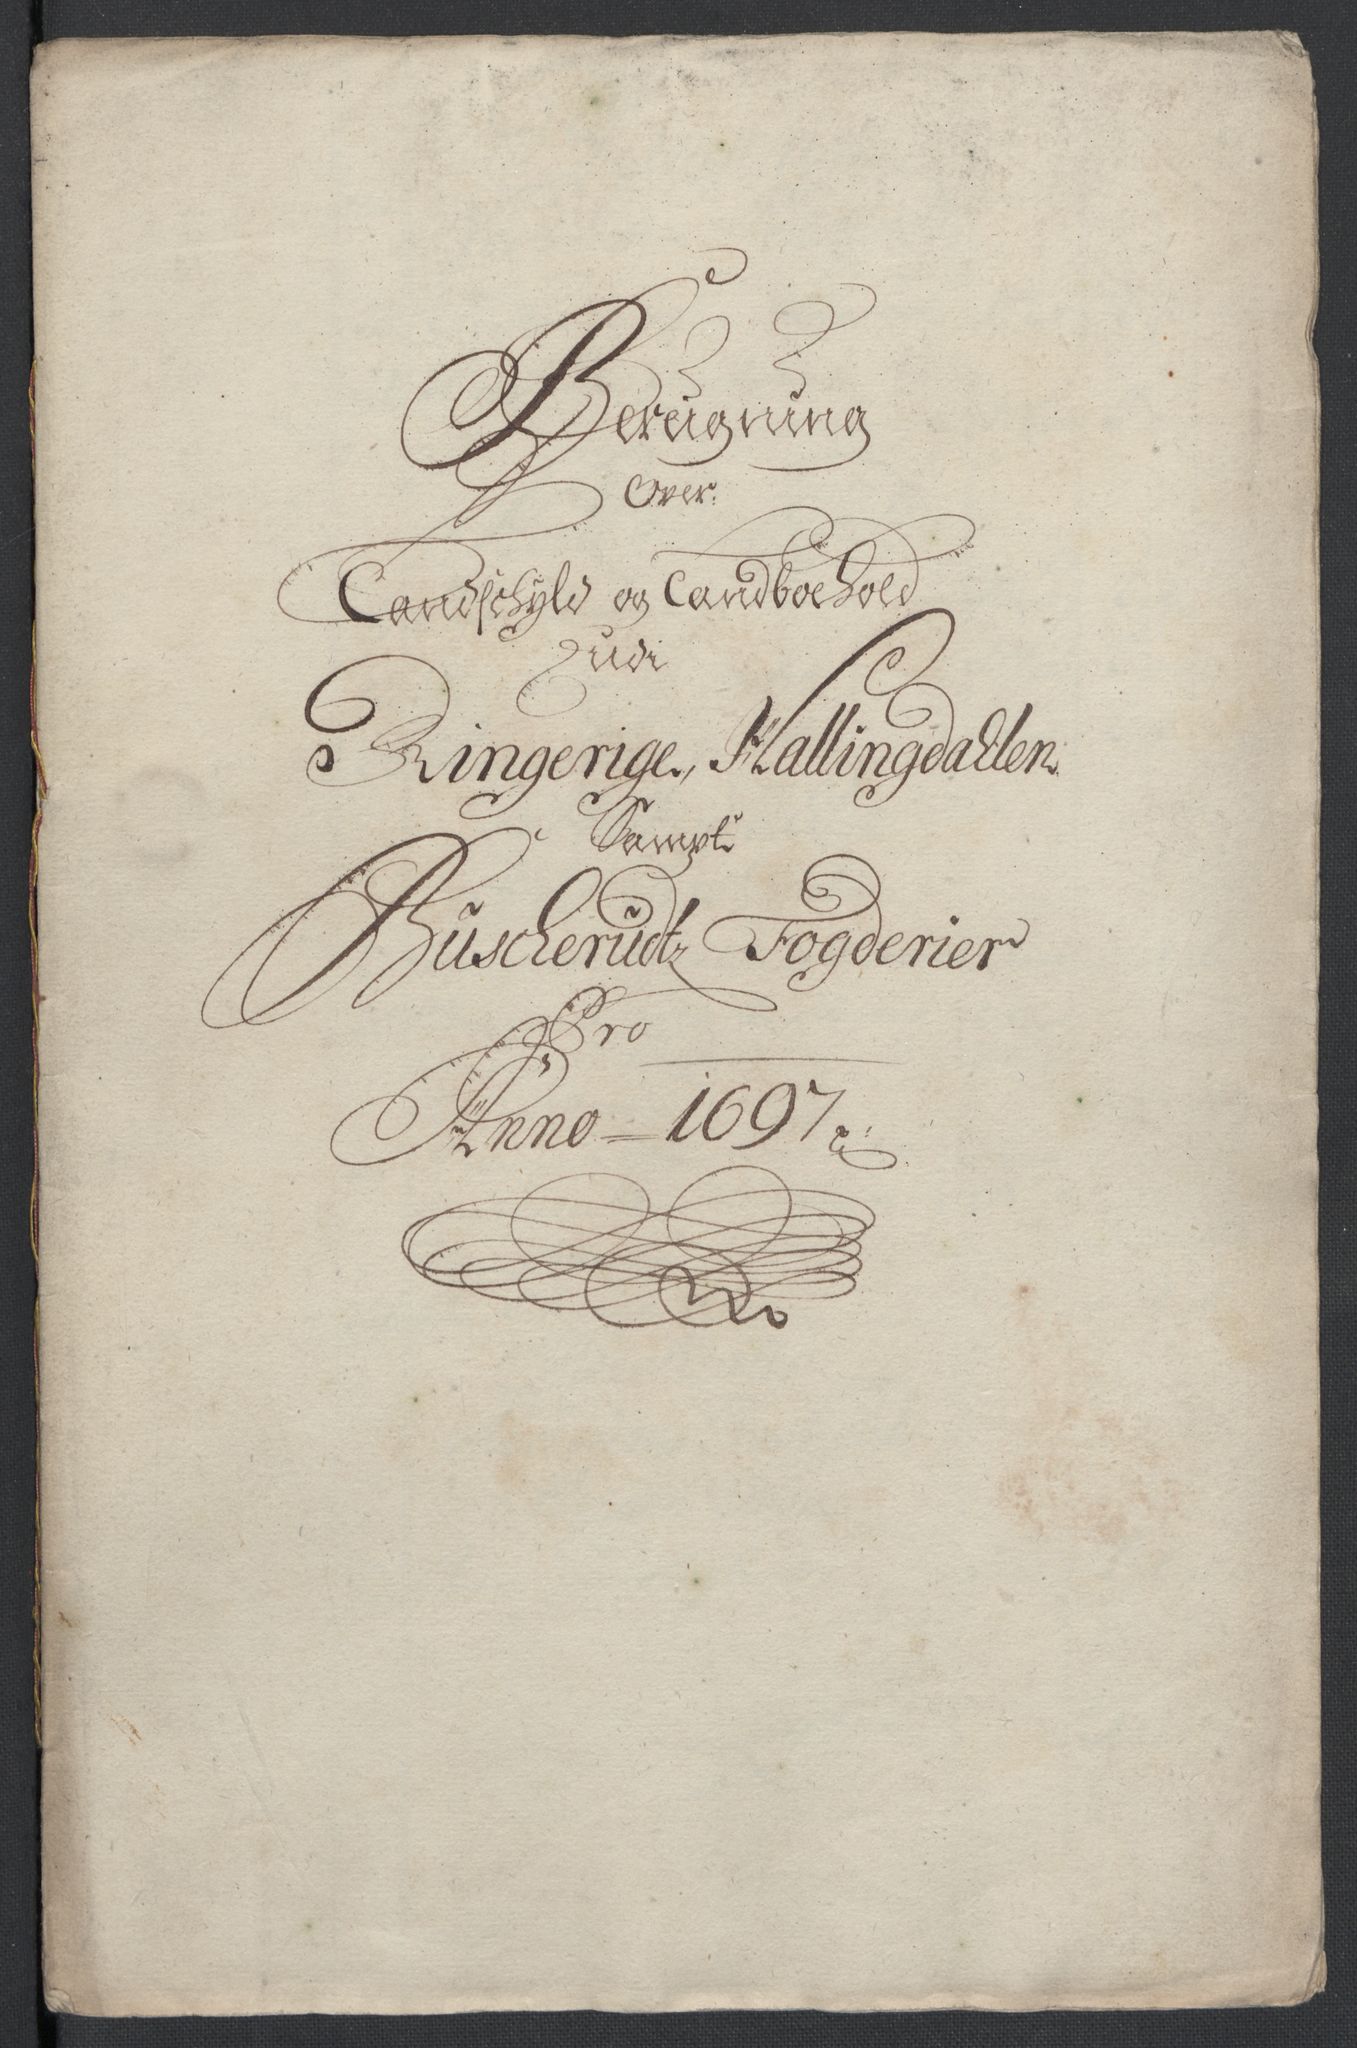 Beregning
Over
Landschyld og Landboehold
Udi
Ringerige, Hallingdahlen
Sampt
Buscherudtz Fogderier
Pro
Anno 1697